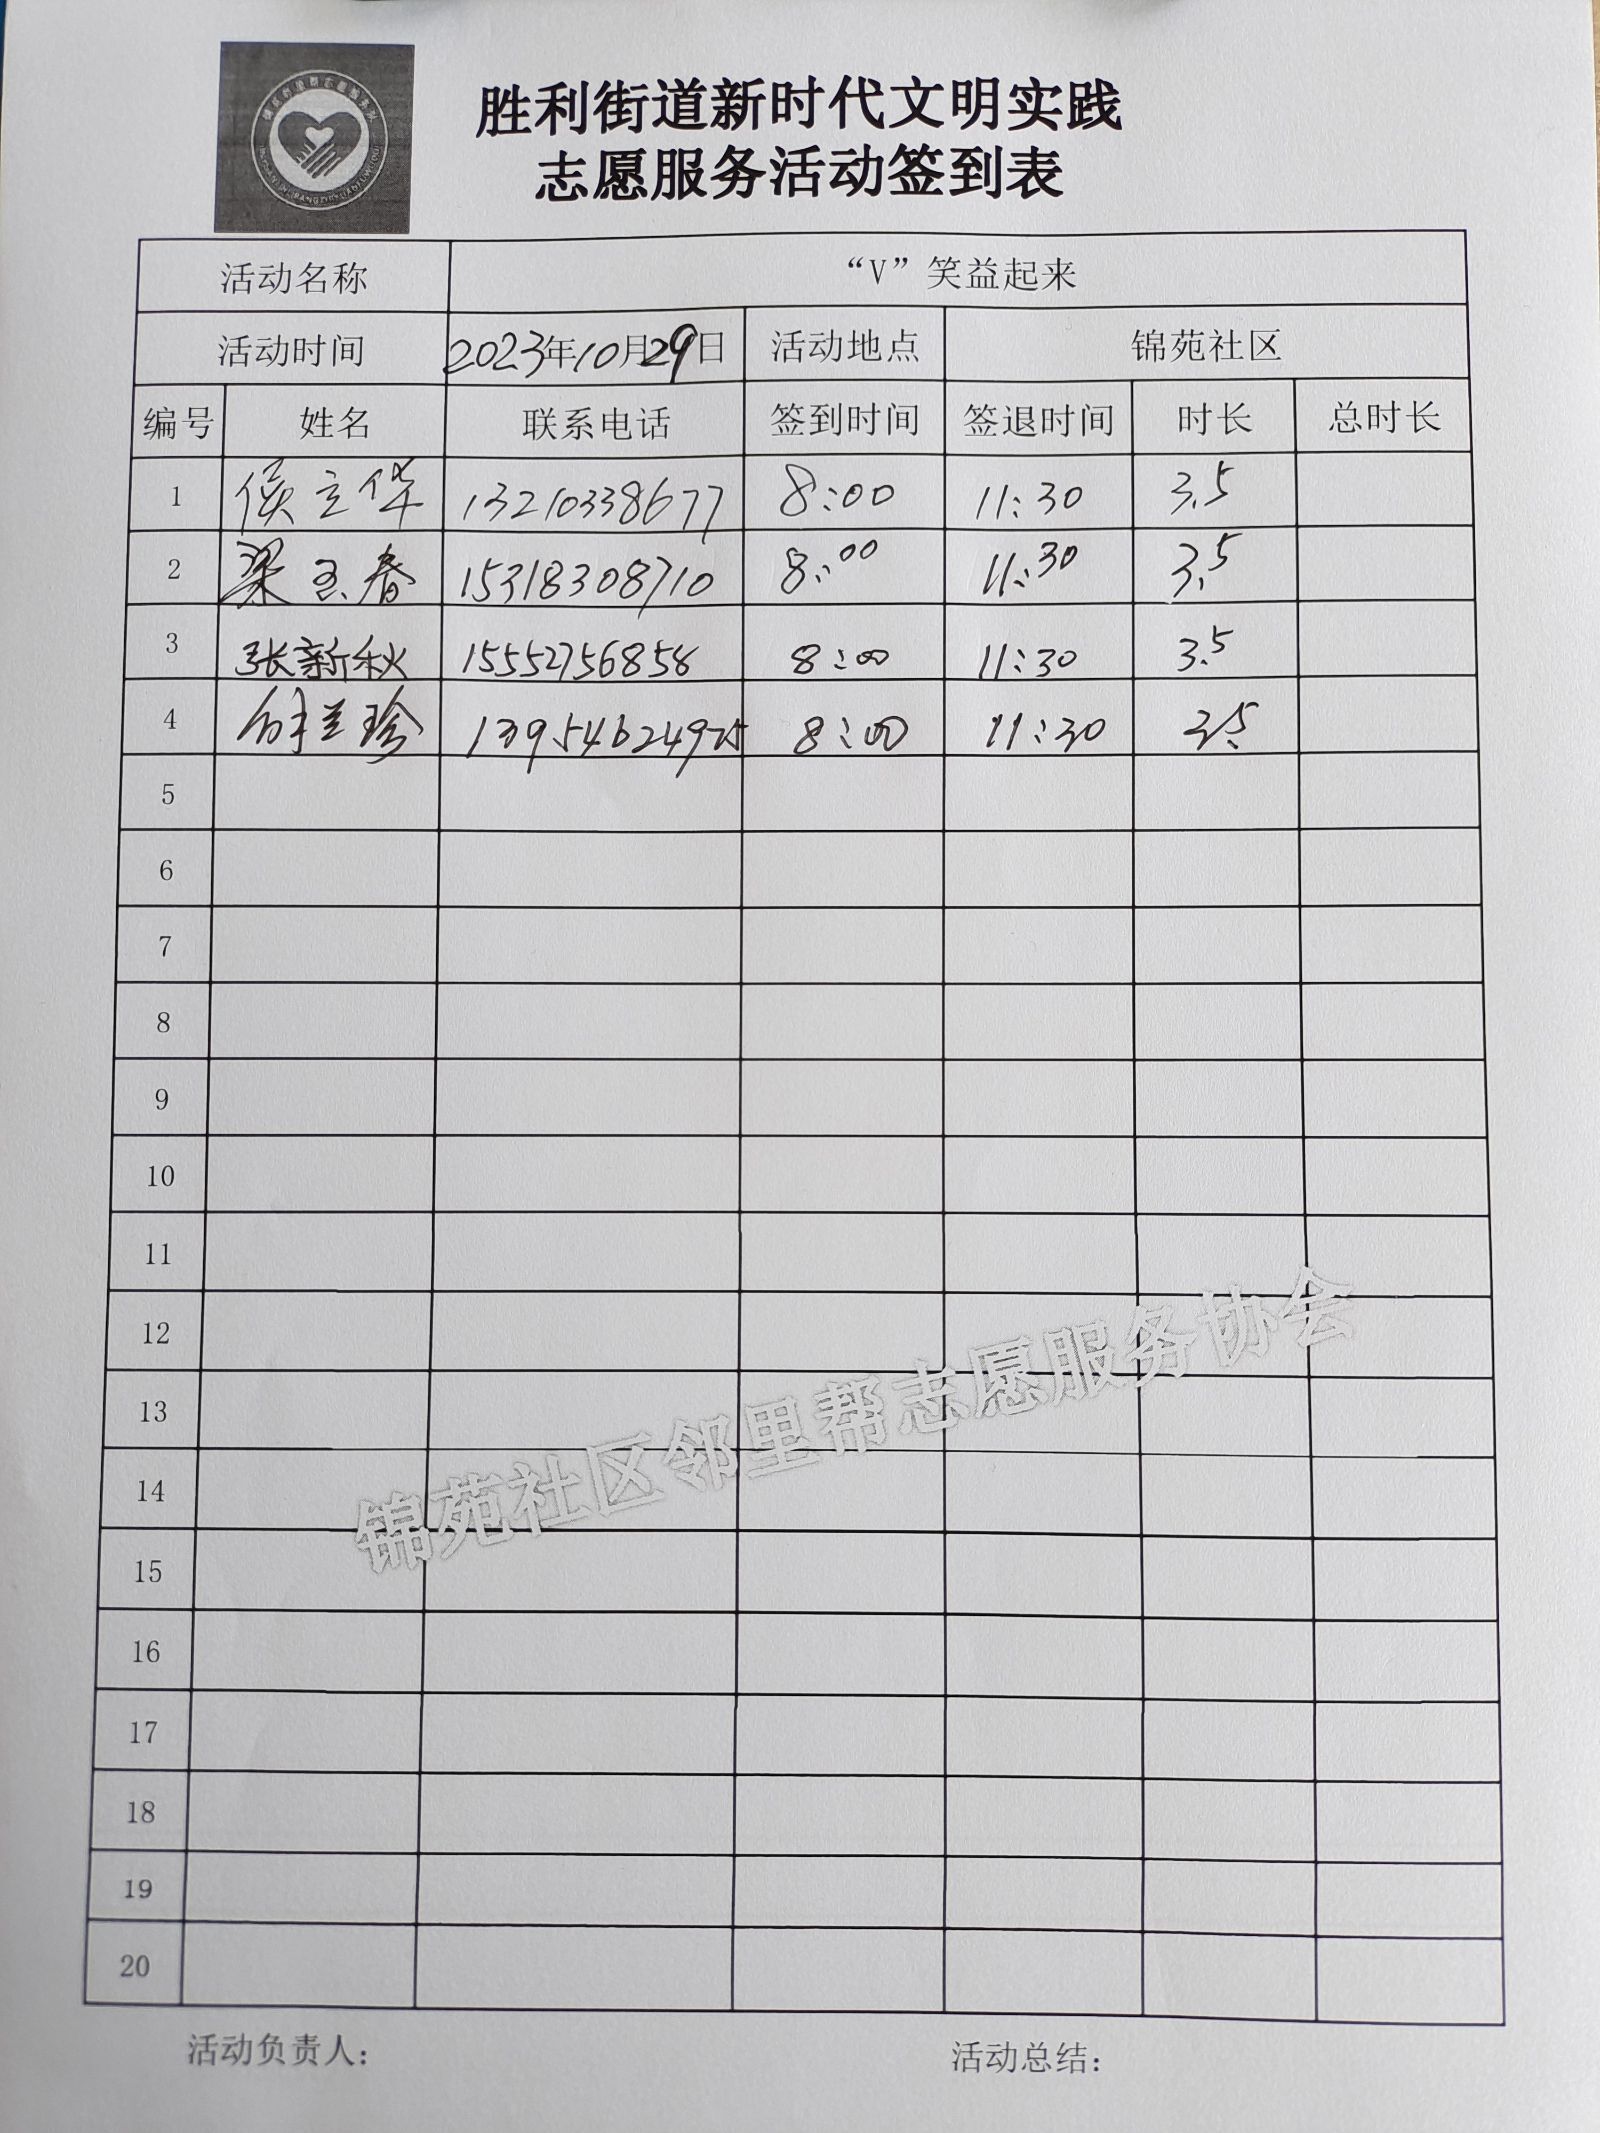 胜利街道新时代文明实践
志愿服务活动签到表
活动名称 “V”笑益起来
活动时间 2023年10月29日 活动地点 锦苑社区
编号 姓名 联系电话 签到时间 签退时间 时长 总时长
1 侯立华 13210338677 8:00 11:30 3.5
2 梁玉春 15318308710 8:00 11:30 3.5
3 张新秋 15552756858 8:00 11:30 3.5
4 兰珍 13954624975 8:00 11:30 3.5
5
6
7
8
9
10
11
12
13
14
15
16
17
18
19
20
锦苑社区邻里帮志愿服务协会
活动负责人：
活动总结：